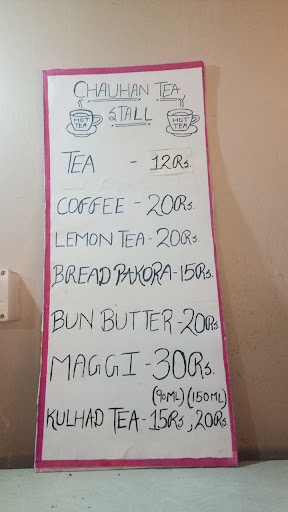 CHAUHAN TEA
STALL
HOT TEA
HOT TEA
TEA - 12Rs.
COFFEE - 20Rs.
LEMON TEA - 20Rs.
BREAD PAKORA - 15Rs.
BUN BUTTER - 20Rs.
MAGGI - 30Rs.
(90ML) (150ML)
KULHAD TEA - 15Rs, 20Rs.